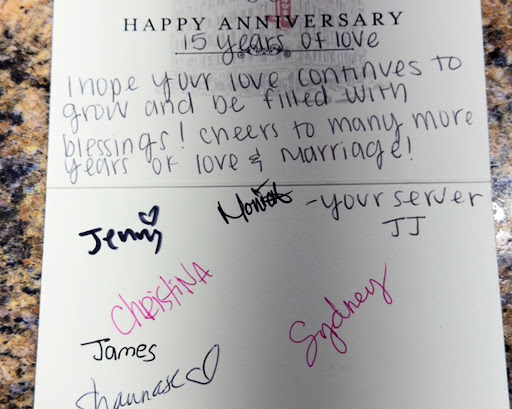 HAPPY ANNIVERSARY
15 years of love
I hope your love continues to
grow and be filled with
blessings! cheers to many more
years of love & marriage!
-your server
JJ
Jenny
Christina
Sydney
James